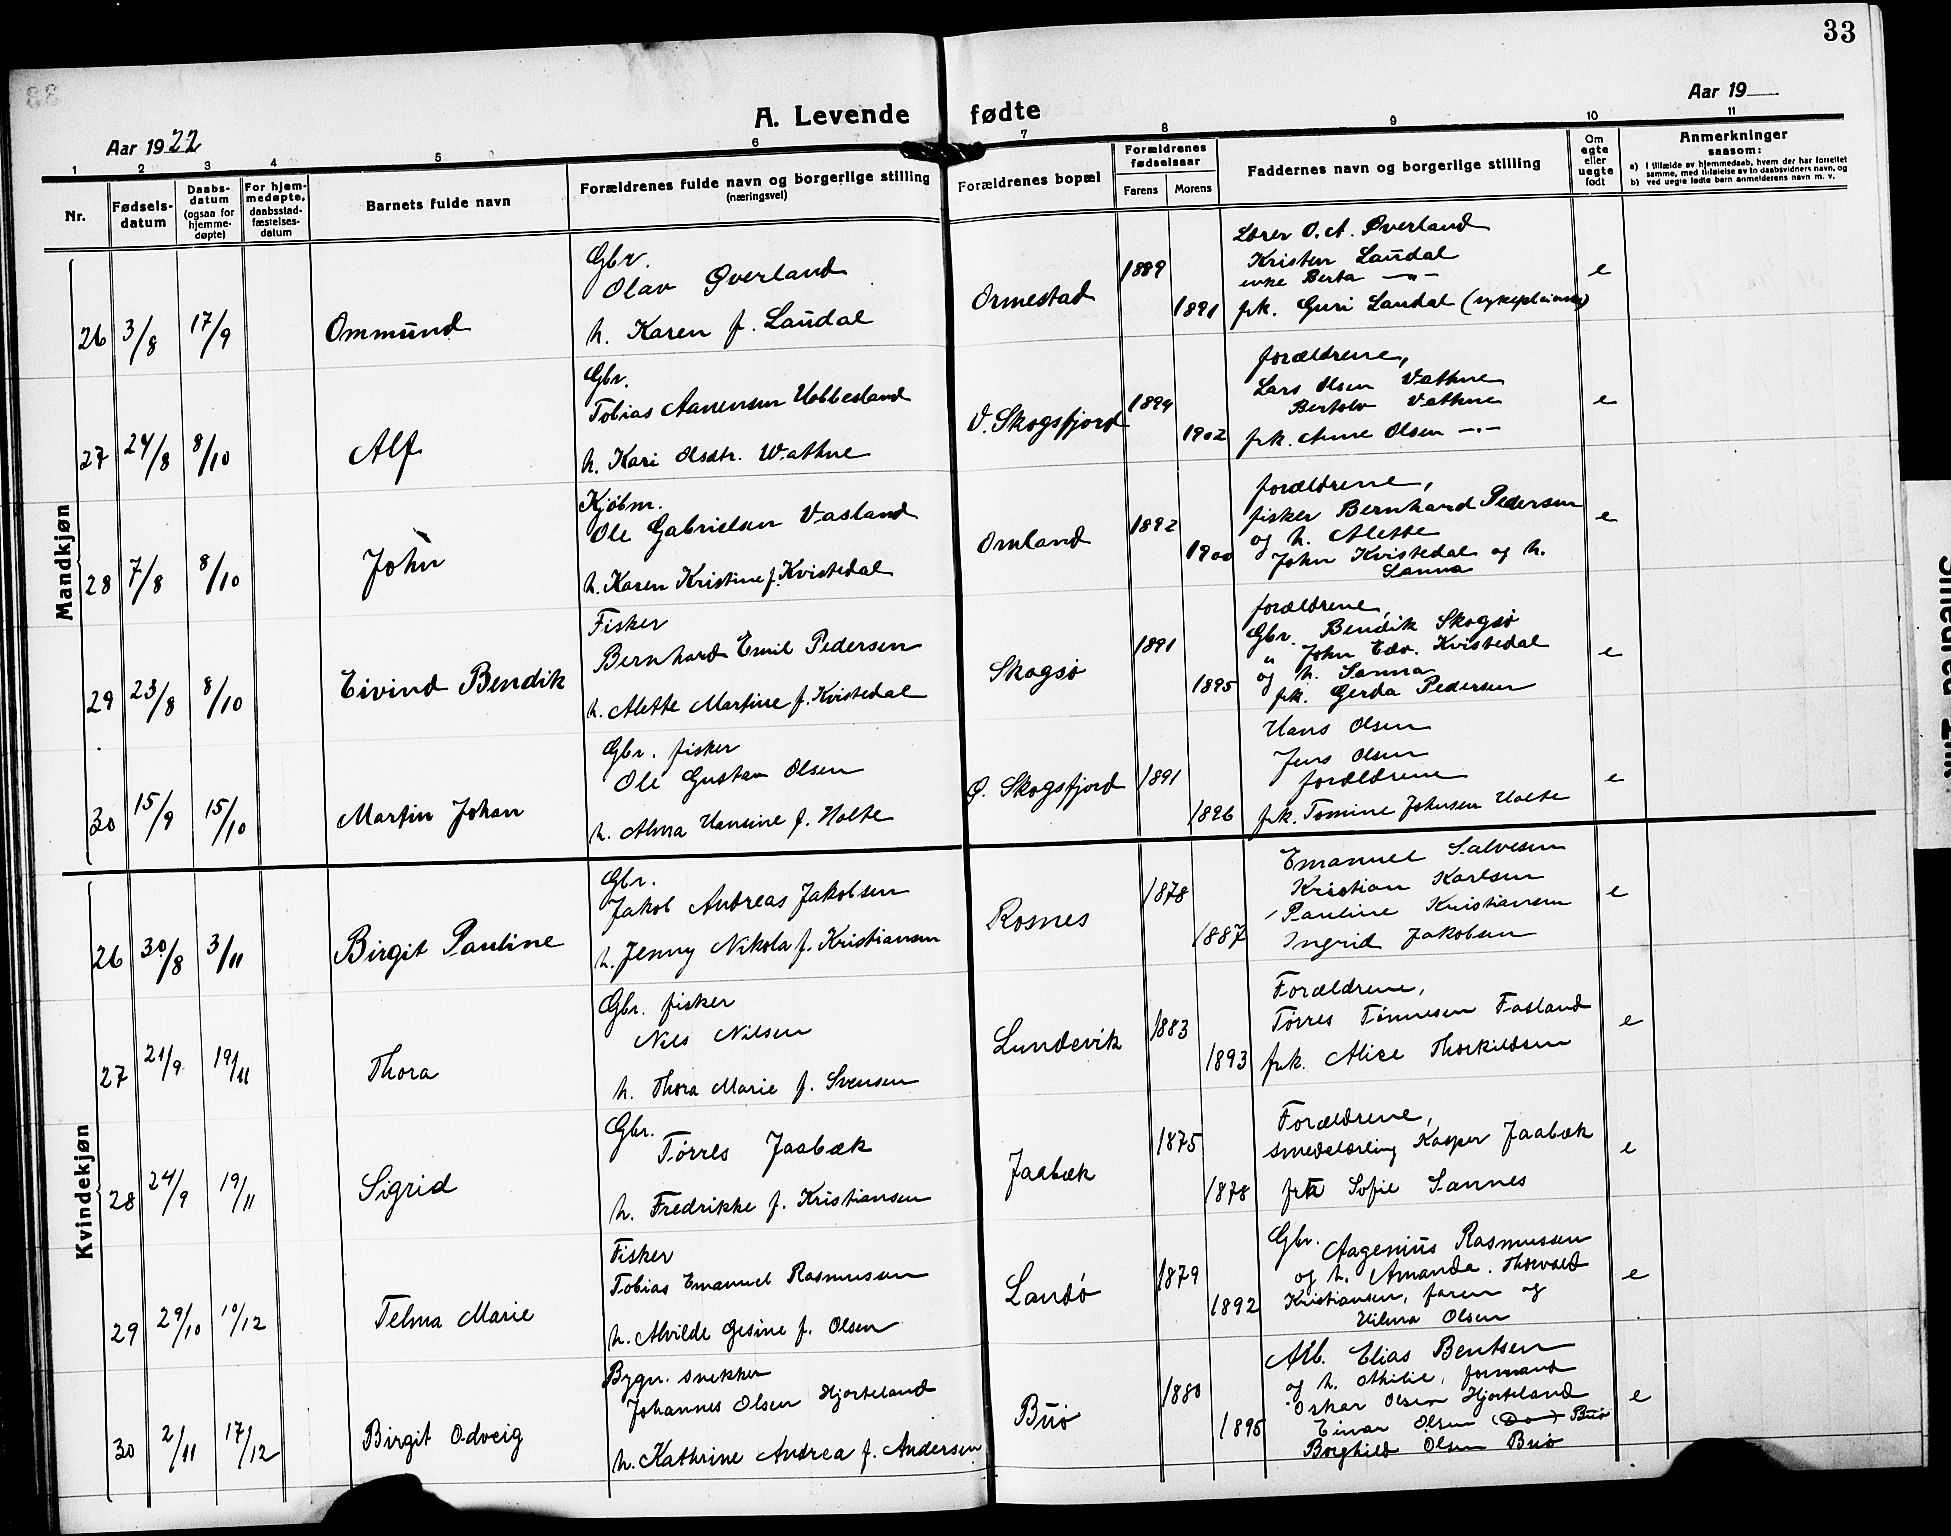 33
A. Levende fødte
Aar 1922
Aar 19
1 2 3 4 5 6 7 8 9 10 11
Nr.
Fødsels-
datum
Daabs-
datum
(ogsaa for
hjemme-
døpte)
For hjem-
medøpte,
daabsstad-
fæstelses-
datum
Barnets fulde navn
Forældrenes fulde navn og borgerlige stilling
(næringsvei)
Forældrenes bopæl
Forældrenes
fødselsaar
Farens Morens
Faddernes navn og borgerlige stilling
Om
egte
eller
uegte
født
Anmerkninger
saasom:
a) I tilfælde av hjemmedaab, hvem der har forrettet
samme, med tilføielse av to daabsvidners navn, og
b) ved uegte fødte børn anmelderens navn m. v.
Mandkjøn
26 3/8 17/9 Ommund
Gbr.
Olav Øverland
h. Karen f. Laudal
Ormestad
1889
1891
Lærer O. A. Øverland
Kristen Laudal
enke Berta -"-
frk. Guri Laudal (sykepleierske)
e
27 24/8 8/10 Alf
Gbr.
Tobias Aanensen Ubbesland
h. Kari Olsdtr. Wathne
V. Skogsfjord
1894
1902
forældrene,
Lars Olsen Vathne
Bertolv Vathne
frk. Anne Olsen -"-
e
28 7/8 8/10 John
Kjøbm.
Ole Gabrielsen Vasland
h. Karen Kristine f. Kvistedal
Omland
1892
1900
forældrene,
fisker Bernhard Pedersen
og h. Alette
John Kvistedal og h.
Sanna
e
29 23/8 8/10 Eivind Bendik
Fisker
Bernhard Emil Pedersen
h. Alette Martine f. Kvistedal
Skogsø
1891
1895
forældrene,
Gbr. Bendik Skogsø
" John Edv. Kvistedal
og h. Sanna
frk. Gerda Pedersen
e
30 15/9 15/10 Martin Johan
Gbr. fisker
Ole Gustav Olsen
h. Alma Hansine f. Holte
Ø. Skogsfjord
1891
1896
Hans Olsen
Jens Olsen
forældrene
frk. Tomine Johnsen Holte
e
Kvindekjøn
26 30/8 3/11 Birgit Pauline
Gbr.
Jakob Andreas Jakobsen
h. Jenny Nikola f. Kristiansen
Rosnes
1878
1887
Emanuel Salvesen
Kristian Karlsen
Pauline Kristiansen
Ingrid Jakobsen
e
27 21/9 19/11 Thora
Gbr. fisker
Nils Nilsen
h. Thora Marie f. Svensen
Lundevik
1883
1893
Forældrene,
Tørres Tønnesen Fasland
frk. Alice Thorkildsen
e
28 24/9 19/11 Sigrid
Gbr.
Tørres Jaabæk
h. Fredrikke f. Kristiansen
Jaabæk
1875
1878
Forældrene,
smedelærling Kasper Jaabæk
frk Sofie Sannes
e
29 29/10 10/12 Telma Marie
Fisker
Tobias Emanuel Rasmussen
h. Alvilde Gesine f. Olsen
Landø
1879
1892
Gbr. Aagenius Rasmussen
og h. Amanda. Thorvald
Kristiansen, faren og
Vilma Olsen
e
30 2/11 17/12 Birgit Odveig
Bygn. snekker
Johannes Olsen Hjorteland
h. Kathrine Andrea f. Andersen
Buø
1880
1895
Arb. Elias Bentsen
og h. Othilie, formand
Oskar Olsen Hjorteland
Einar Olsen (Do) Buø
Borghild Olsen Buø
e